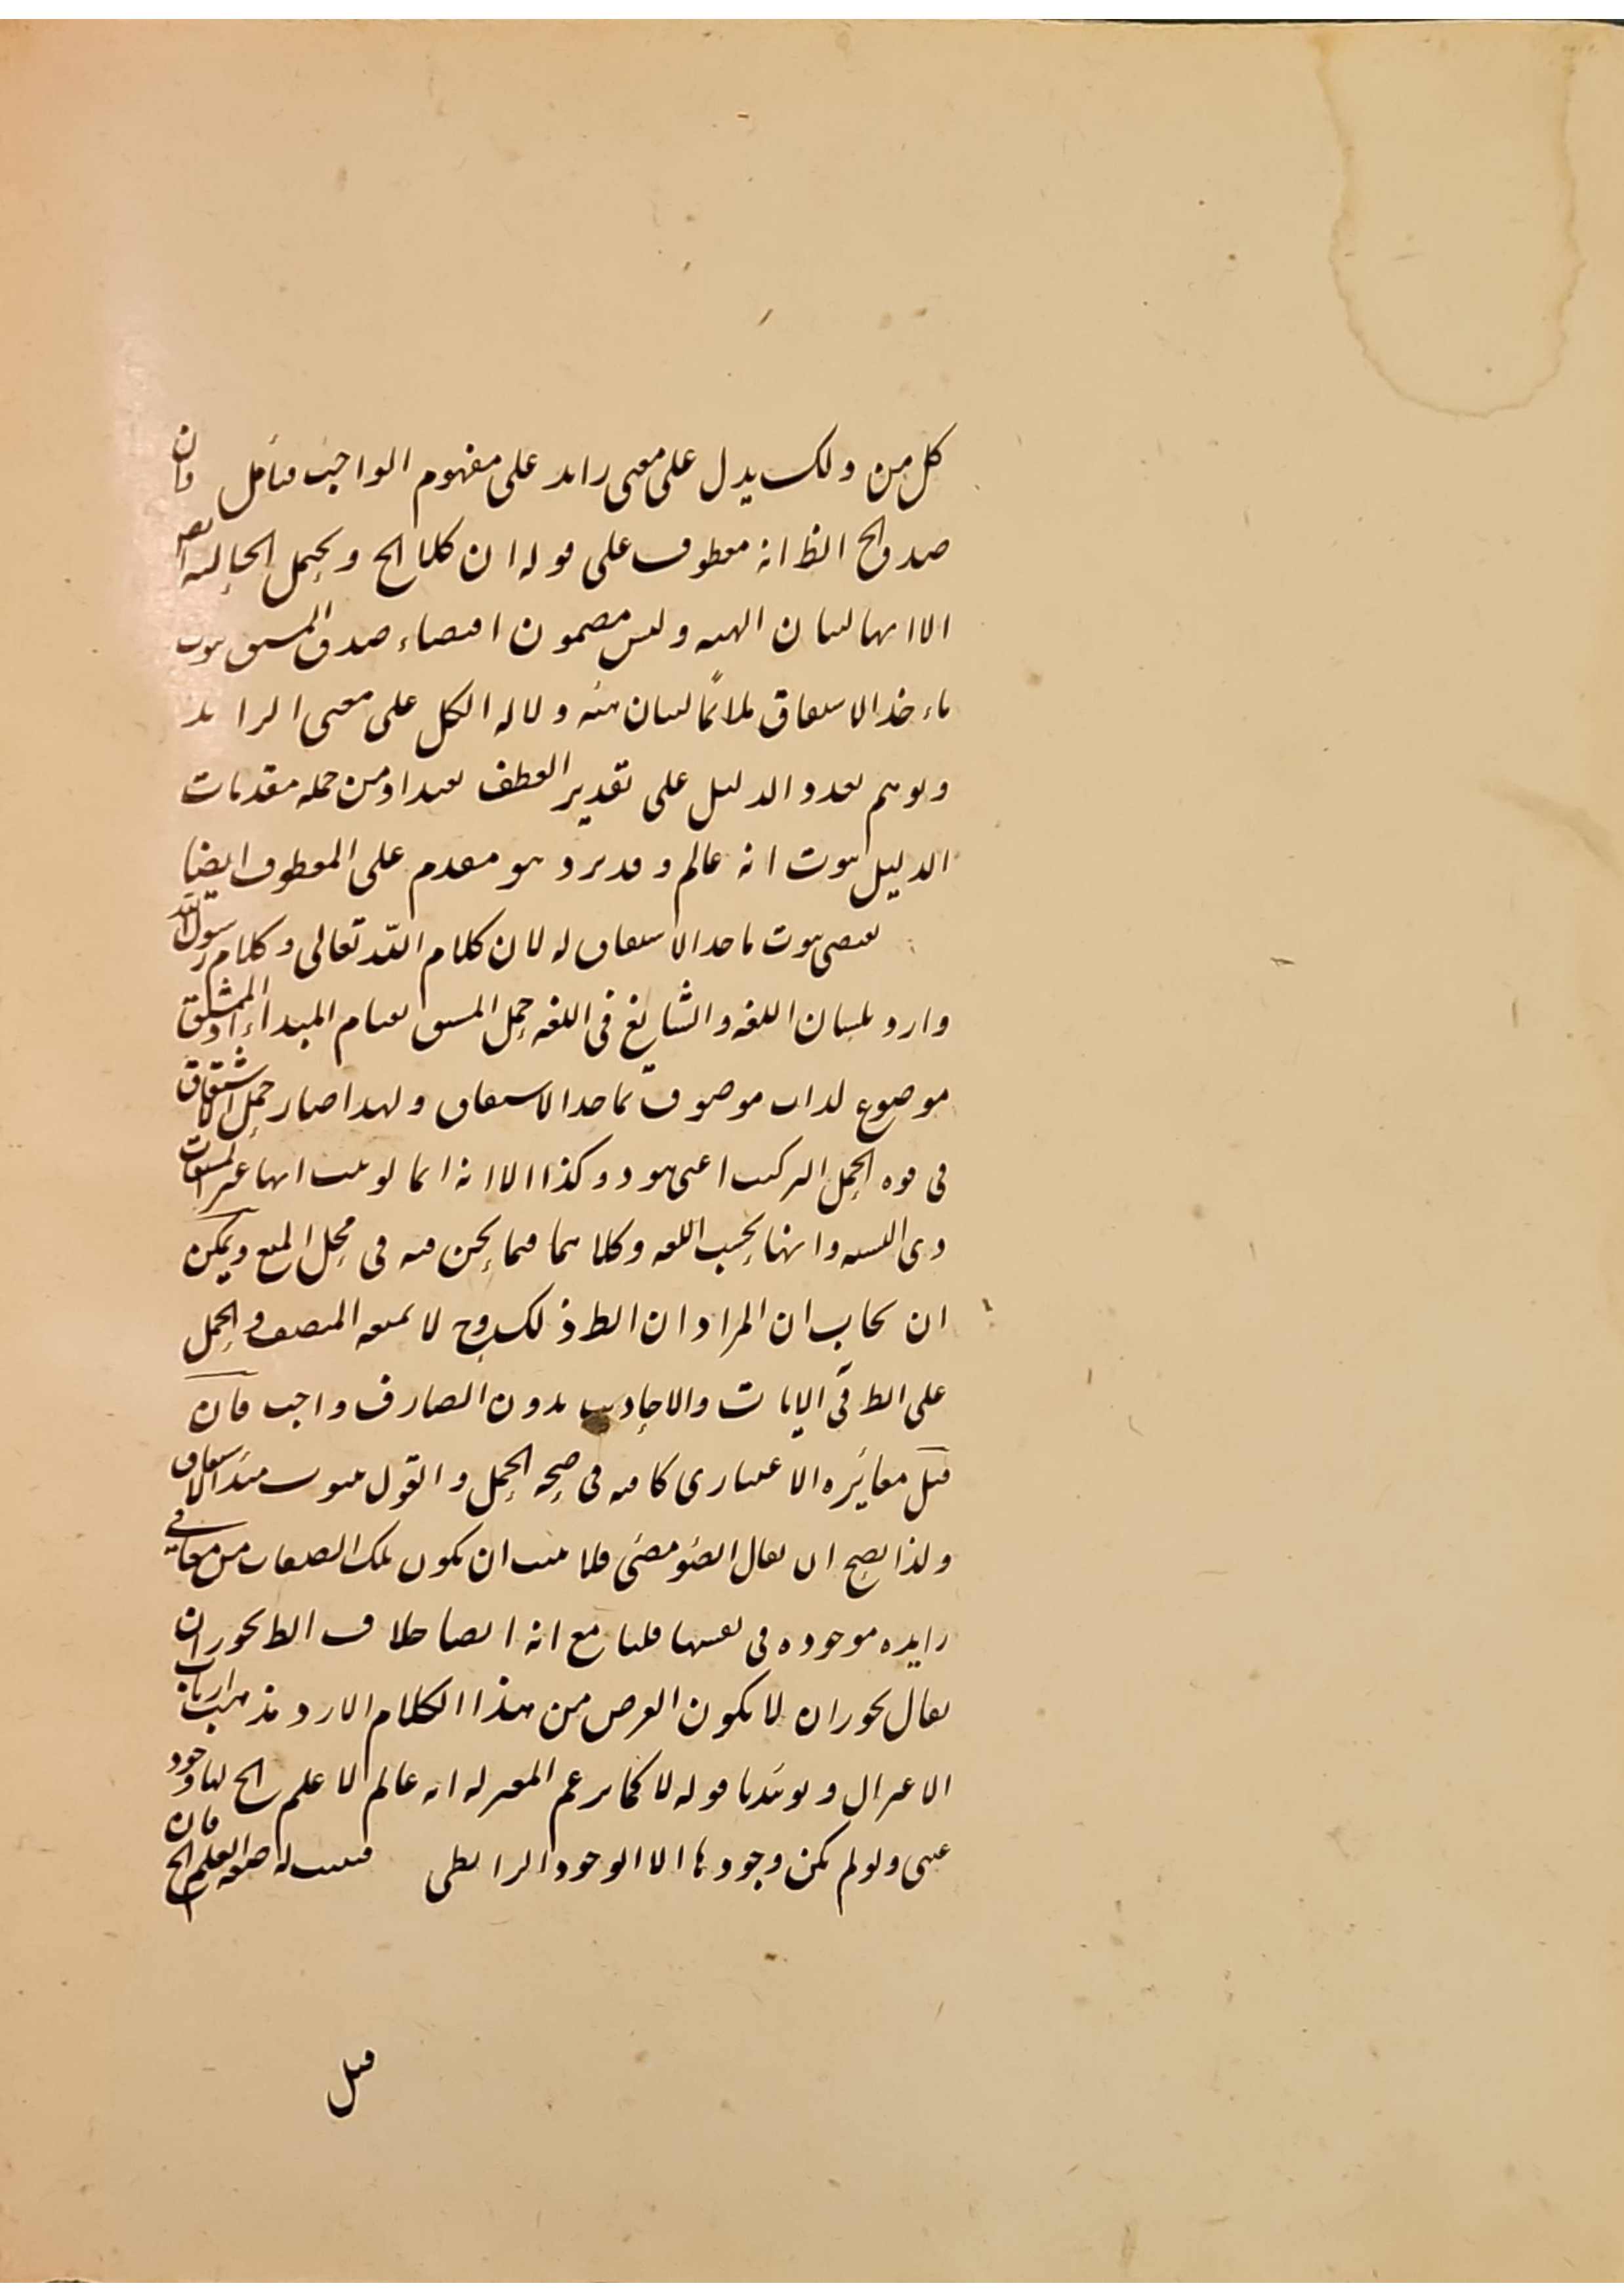 كل من ذلك يدل على معنى زايد على مفهوم الواجب فتأمل وان
صدق الخ الظ انه معطوف على قوله ان كلا الخ ويحتمل الحالية
الا انها لبيان الهيئة وليس مضمون اقتضاء صدق المشتق ثبوت
ماءخذ الاشتقاق ملائما لبيان هيئة دلالة الكل على معنى الزائد
وتوهم تعدد الدليل على تقدير العطف بعيد اذ من جملة مقدمات
الدليل ثبوت انه عالم وقدير وهو مقدم على المعطوف ايضا
يقتضى ثبوت ماخذ الاشتقاق له لان كلام الله تعالى وكلام رسول الله
وارد بلسان اللغة والشايع في اللغة حمل المشتق لقيام المبداء اذ المشتق
موضوع لذات موصوف بماخذ الاشتقاق ولهذا صار حمل الاشتقاق
في قوة الحمل التركيب اعنى هو ذو كذا الا انه انما لو ثبت انها غير المشتقات
وى النسبة وانها بحسب اللغة وكلاهما فيما نحن فيه في محل المنع ويمكن
ان يجاب ان المراد ان الظ ذلك وح لا يمنعه المنصف والحمل
على الظ في الايات والاحاديث بدون الصارف واجب فان
قيل مغايرة الاعتبارى كافية في صحة الحمل والقول بثبوت مبدا الاشتقاق
ولذا يصح ان يقال الضوء مضئ فلا يثبت ان يكون تلك الصفات من معانى
زايدة موجودة في نفسها قلنا مع انه ايضا خلاف الظ يجوز ان
يقال يجوز ان لا يكون الغرض من هذا الكلام الا رد مذهب ارباب
الاعتزال ويؤيد ما قوله لا كما يزعم المعتزلة انه عالم لا علم الخ لها وجود
عينى ولو لم يكن وجودها الا الوجود الرابطى فيثبت له صفة العلم الخ فان
قيل